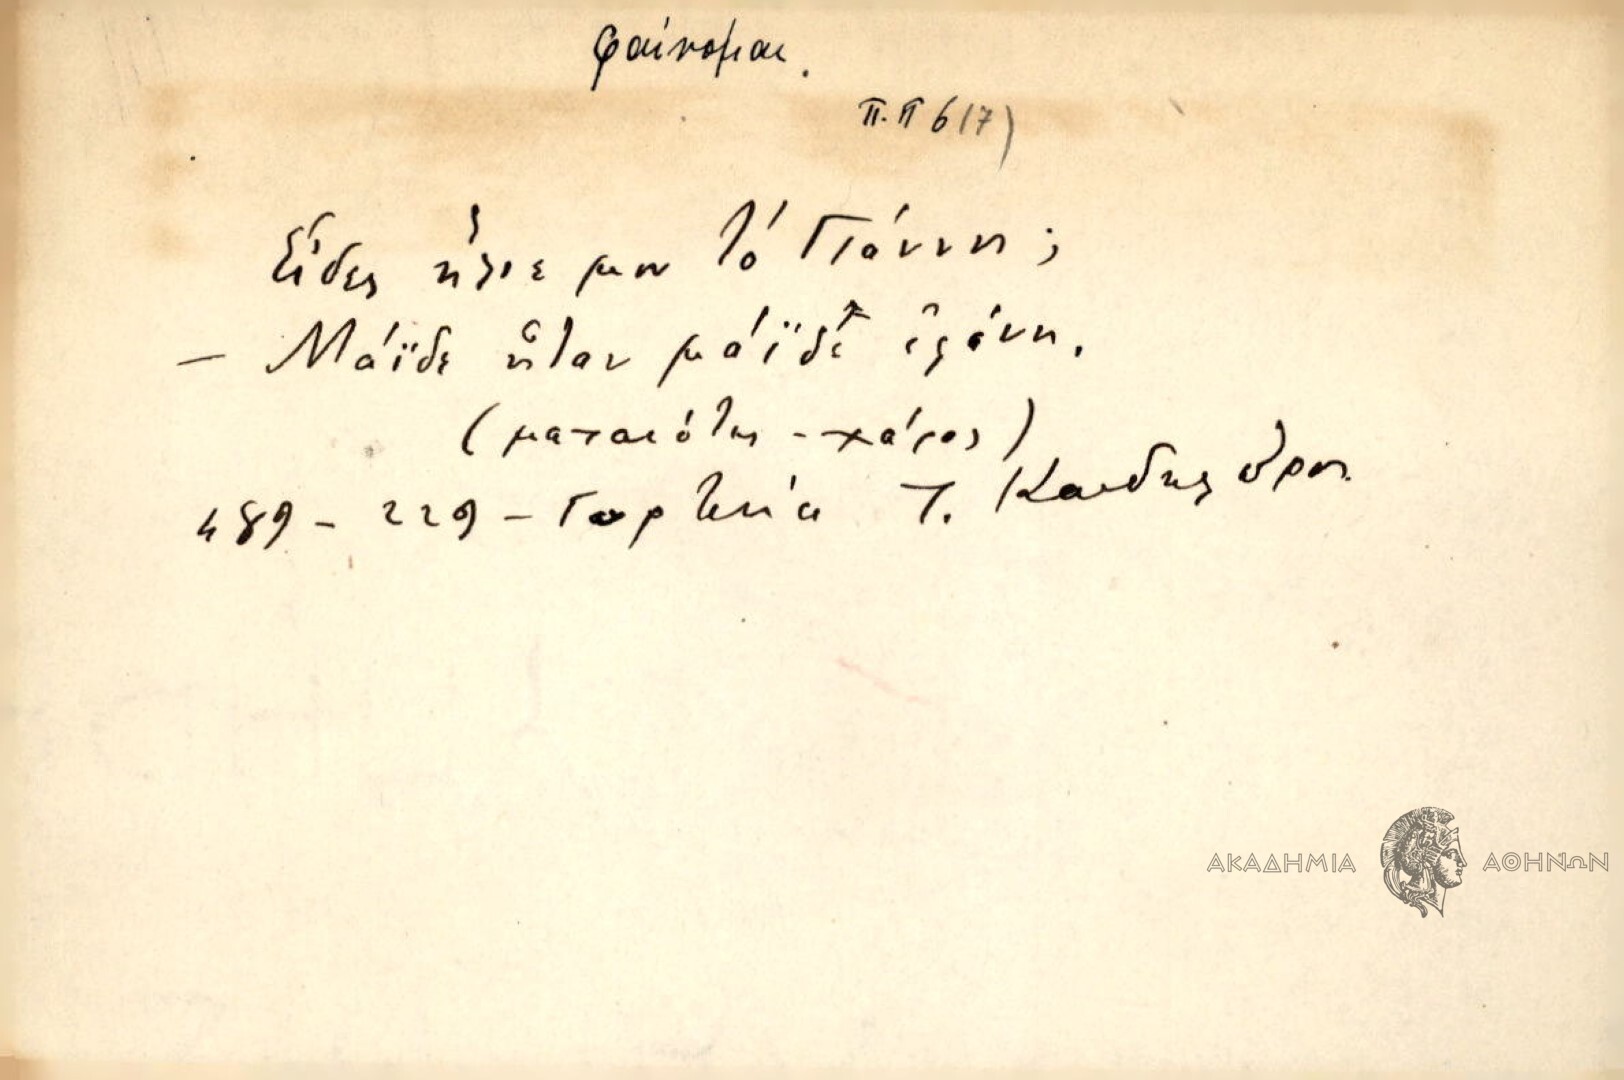 φαίνομαι.
Π.Π 6/7)
Εἶδες ἥλιε μου τὸ Γιάννη;
— Μάϊδε ἦταν μάϊδὲ ἐφάνη.
(ματαιότης - χάρος)
489 - 229 - Γορτυνία Τ.
ΑΚΑΔΗΜΙΑ ΑΘΗΝΩΝ